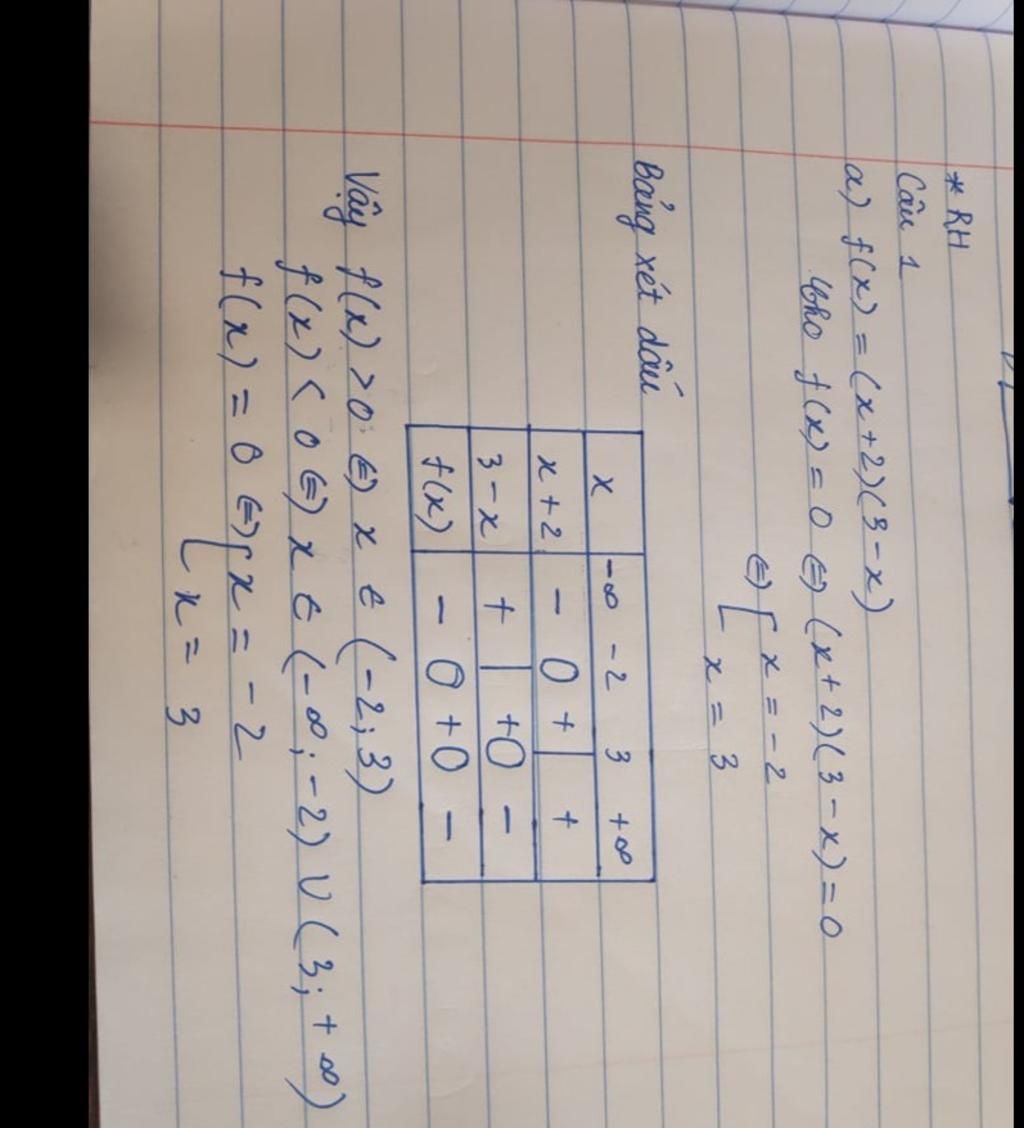 * RH
Câu 1
a) f(x) = (x+2)(3-x)
Cho f(x) = 0 ⇔ (x+2)(3-x) = 0
⇔ [ x = -2
x = 3
Bảng xét dấu
x -∞ -2 3 +∞
x+2 - 0 + | +
3-x + | + 0 -
f(x) - 0 + 0 -
Vậy f(x) > 0 ⇔ x ∈ (-2; 3)
f(x) < 0 ⇔ x ∈ (-∞; -2) ∪ (3; +∞)
f(x) = 0 ⇔ [ x = -2
x = 3